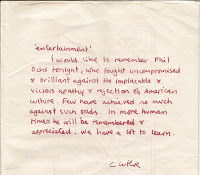 'entertainment'
I would like to remember Phil
Ochs tonight, who fought uncompromised
& brilliant against the implacable &
vicious apathy & rejection of American
culture. Few have achieved so much
against such odds. In more human
times he will be remembered &
appreciated. We have a lot to learn.